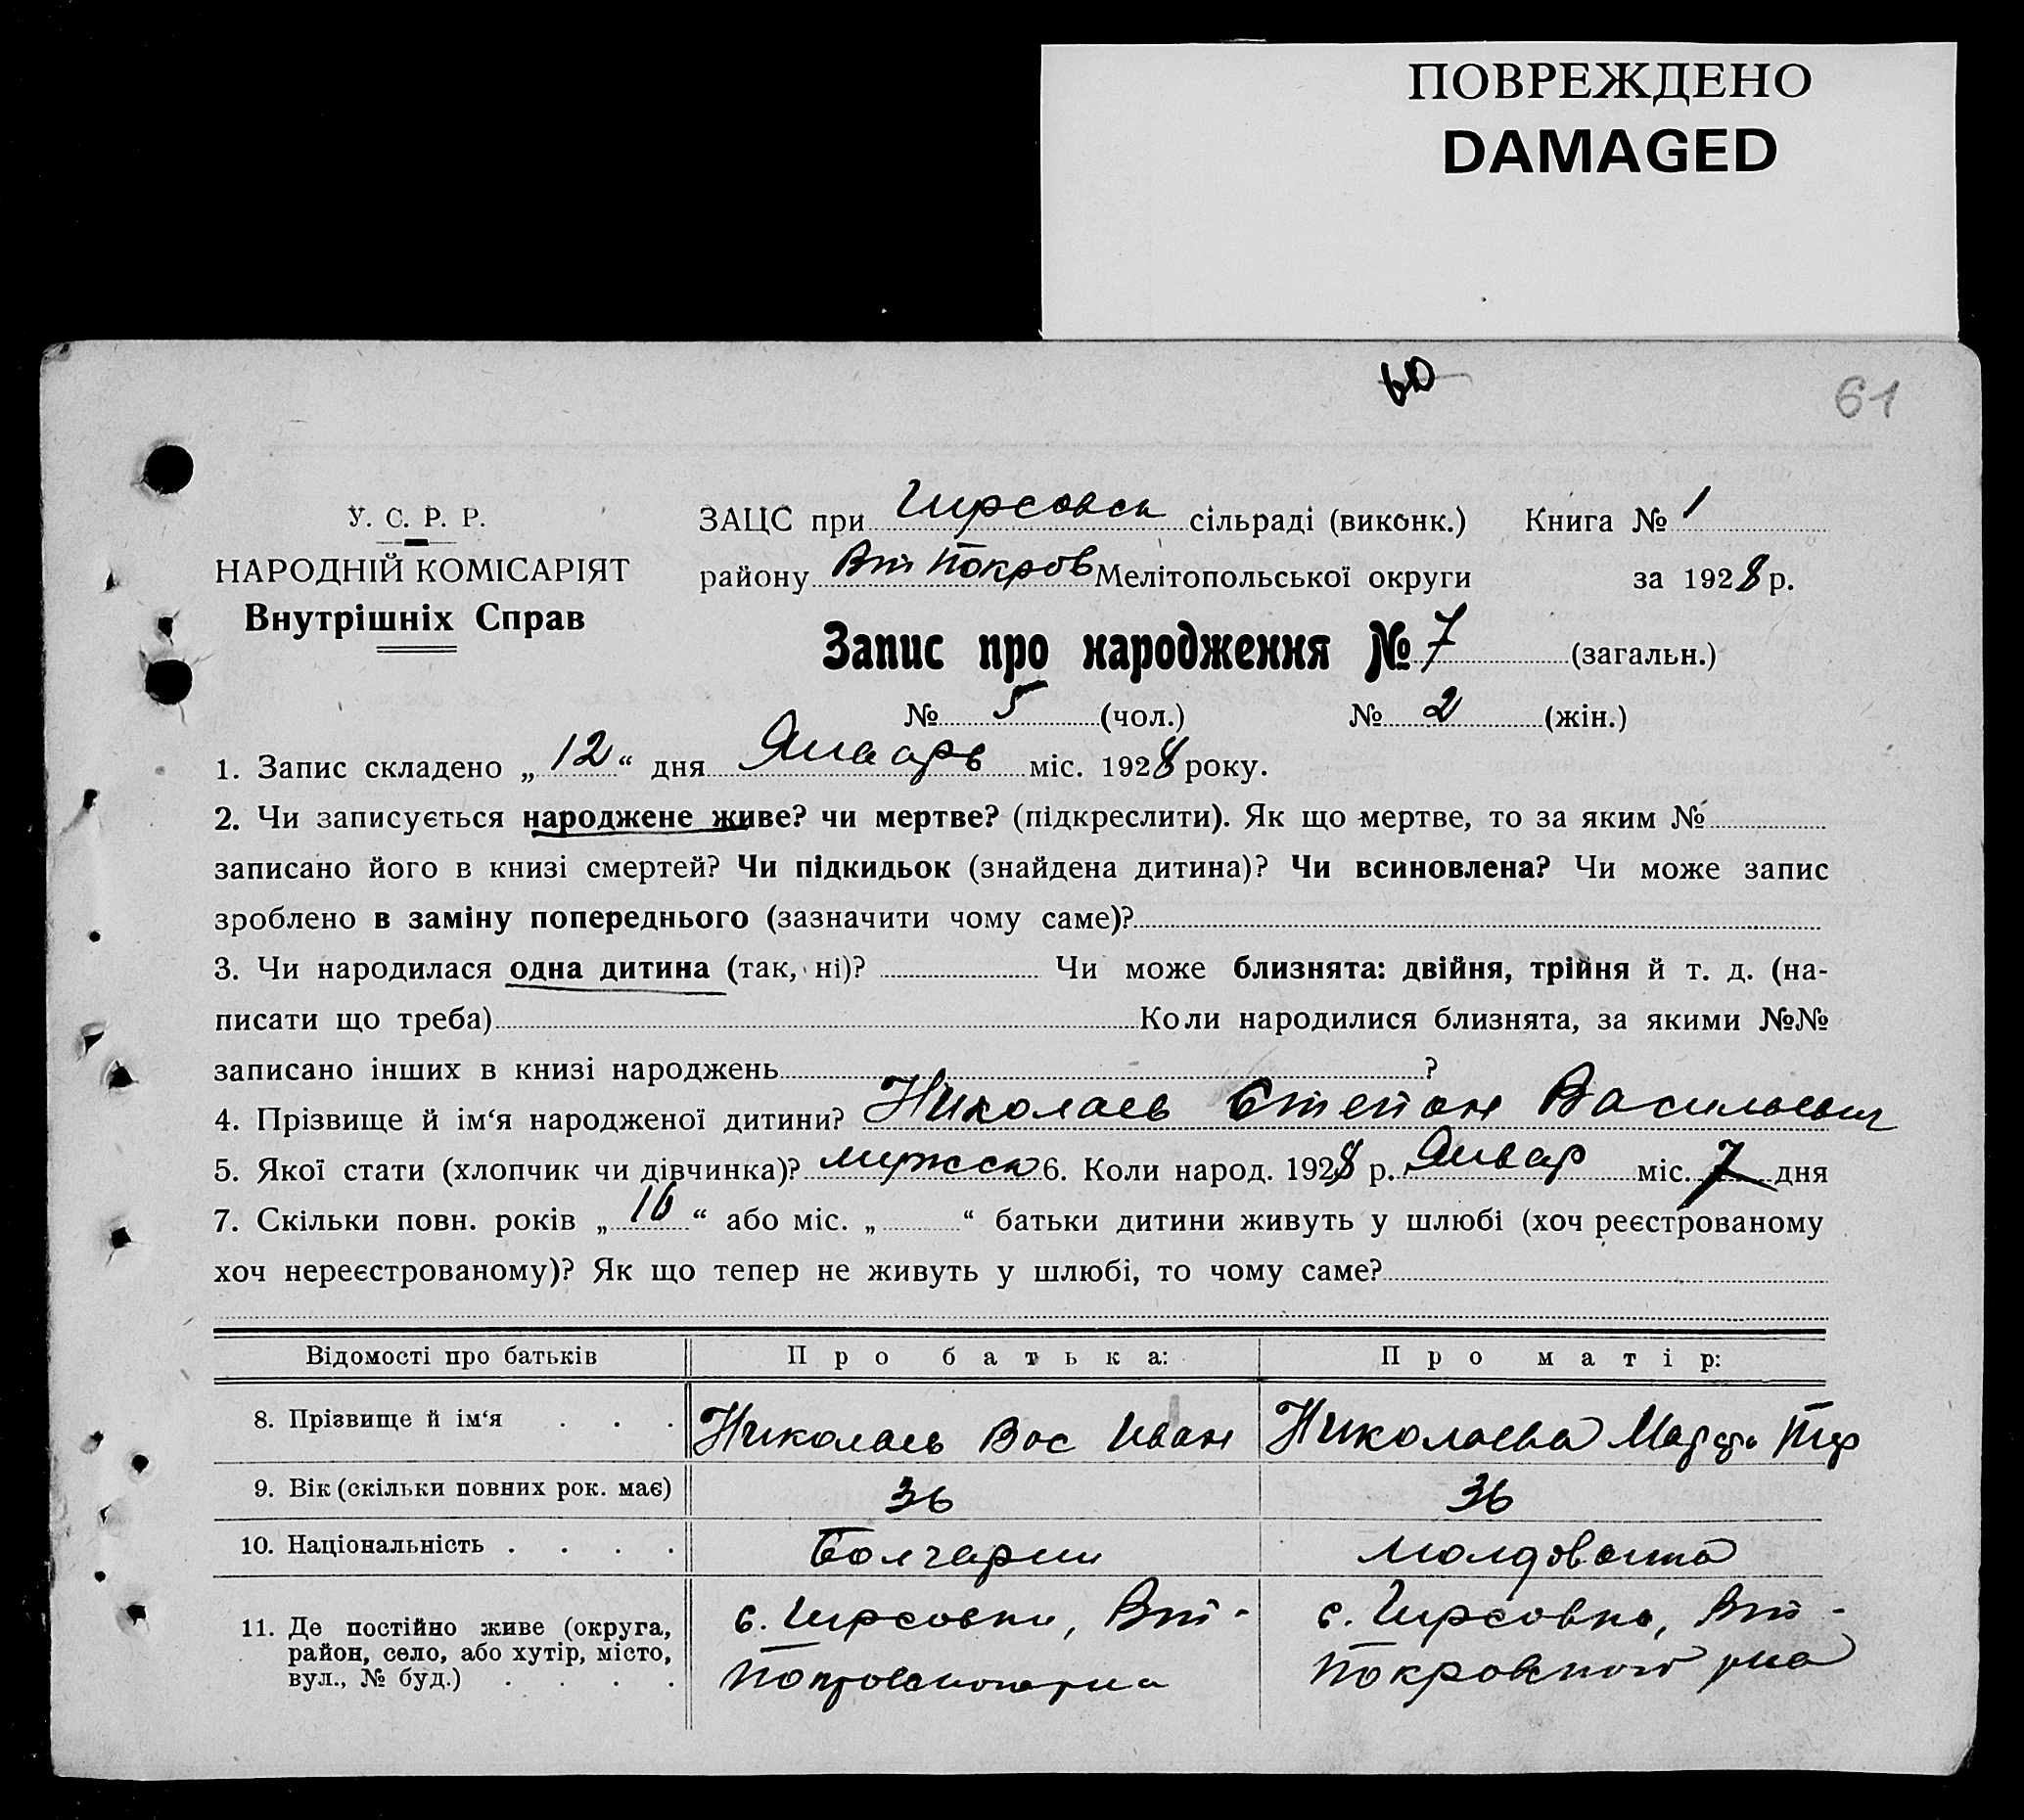 ПОВРЕЖДЕНО
DAMAGED
60
61
У. С. Р. Р.
НАРОДНІЙ КОМІСАРІЯТ
Внутрішніх Справ
ЗАЦС при Гирсовск сільраді (виконк.) Книга № 1
району Вт Покров Мелітопольської округи за 1928 р.
Запис про народження № 7 (загальн.)
№ 5 (чол.) № 2 (жін.)
1. Запис складено „12“ дня Января міс. 1928 року.
2. Чи записується народжене живе? чи мертве? (підкреслити). Як що мертве, то за яким №
записано його в книзі смертей? Чи підкидьок (знайдена дитина)? Чи всиновлена? Чи може запис
зроблено в заміну попереднього (зазначити чому саме)?
3. Чи народилася одна дитина (так, ні)? Чи може близнята: двійня, трійня й т. д. (на-
писати що треба) Коли народилися близнята, за якими №№
записано інших в книзі народжень ?
4. Прізвище й ім‘я народженої дитини? Николаев Степан Васильевич
5. Якої стати (хлопчик чи дівчинка)? мужск 6. Коли народ. 1928 р. Январ міс. 7 дня
7. Скільки повн. років „16“ або міс. „ “ батьки дитини живуть у шлюбі (хоч реєстрованому
хоч нереєстрованому)? Як що тепер не живуть у шлюбі, то чому саме?
Відомості про батьків Про батька: Про матір:
8. Прізвище й ім‘я . . . Николаев Вас Иван Николаева Марфа Тир
9. Вік (скільки повних рок. має) 36 36
10. Національність . . . . Болгарин Молдованка
11. Де постійно живе (округа, с. Гирсовки, Вт- с. Гирсовка, Вт-
район, село, або хутір, місто, Покровского р-на Покровского р-на
вул., № буд.) . . . .